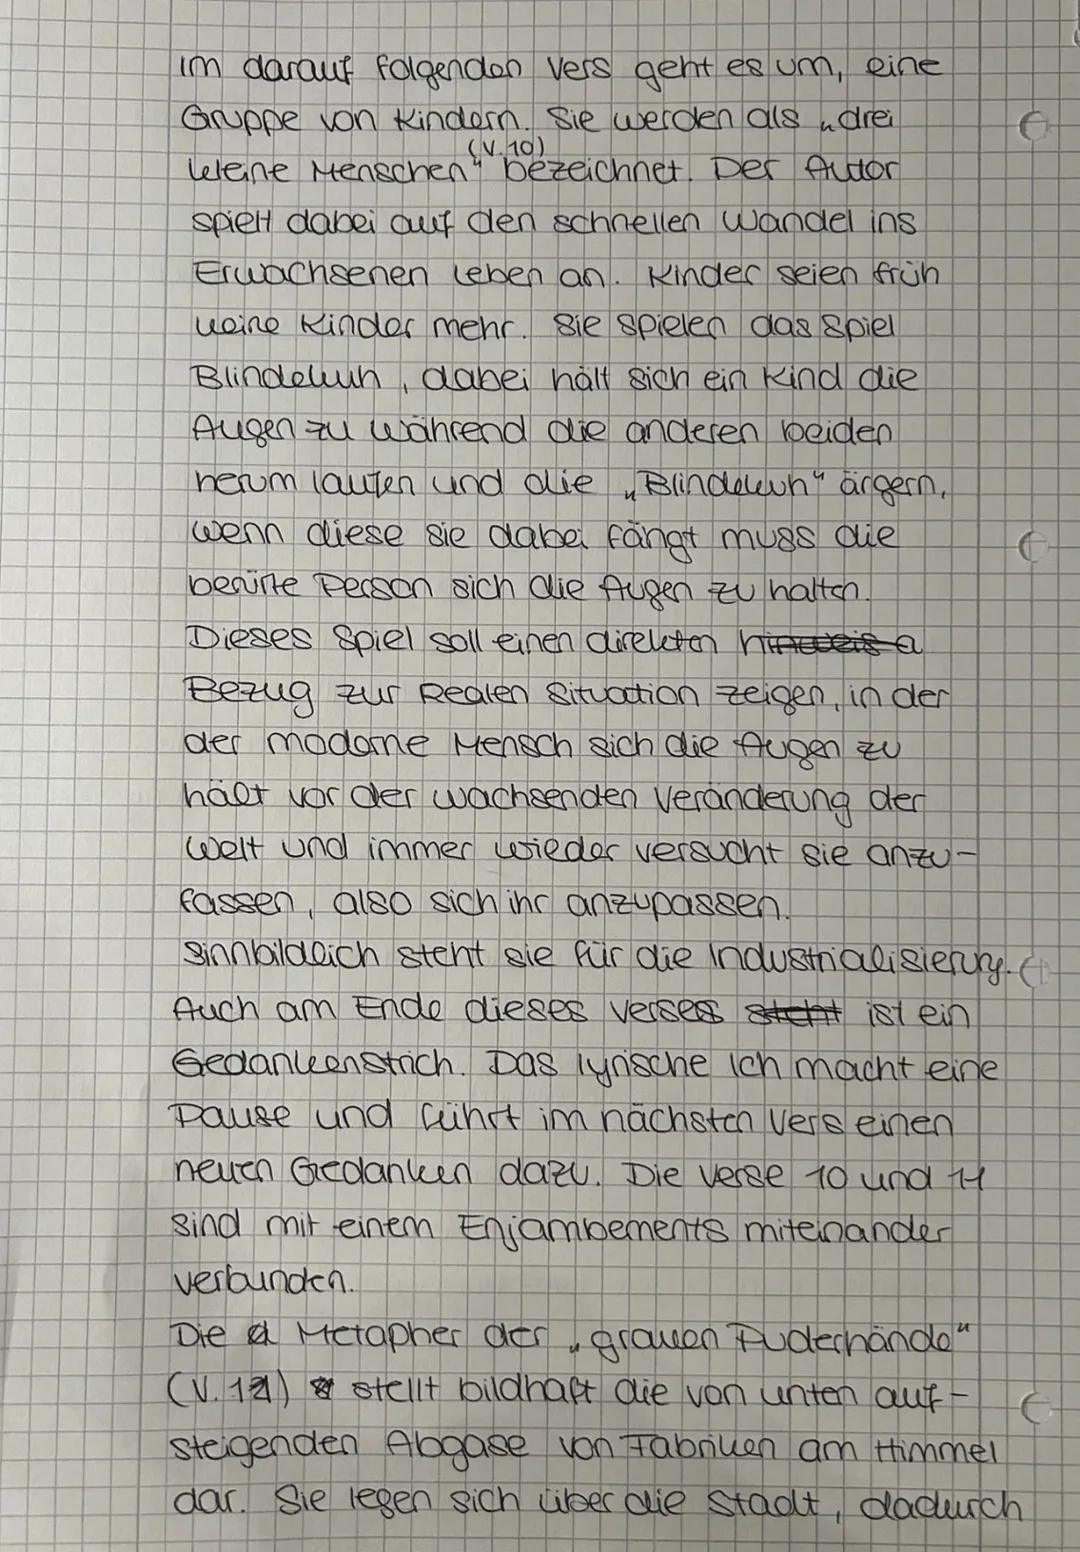 im darauf folgenden Vers geht es um, eine
Gruppe von Kindern. Sie werden als „drei
(V. 10)
kleine Menschen“ bezeichnet. Der Autor
spielt dabei auf den schnellen Wandel ins
Erwachsenen Leben an. Kinder seien früh
keine Kinder mehr. Sie spielen das Spiel
Blindekuh, dabei hält sich ein Kind die
Augen zu während die anderen beiden
herum laufen und die „Blindekuh“ ärgern,
wenn diese sie dabei fängt muss die
berürte Person sich die Augen zu halten.
Dieses Spiel soll einen direkten hinweis a
Bezug zur Realen Situation zeigen, in der
der moderne Mensch sich die Augen zu
hält vor der wachsenden Veränderung der
Welt und immer wieder versucht sie anzu-
fassen, also sich ihr anzupassen.
Sinnbildlich steht sie für die Industrialisierung.
Auch am Ende dieses Verses steht ist ein
Gedankenstrich. Das lyrische Ich macht eine
Pause und führt im nächsten Vers einen
neuen Gedanken dazu. Die Verse 10 und 11
sind mit einem Enjambements miteinander
verbunden.
Die d Metapher der „grauen Puderhände“
(V. 12) stellt bildhaft die von unten auf-
steigenden Abgase von Fabriken am Himmel
dar. Sie legen sich über die Stadt, dadurch